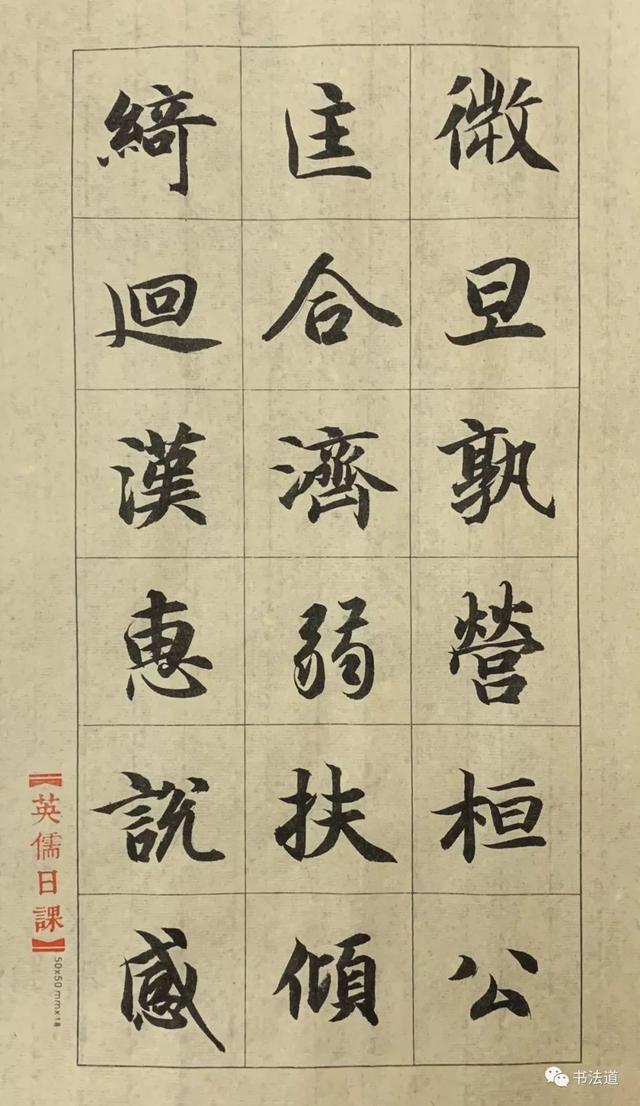 微旦孰營桓公
匡合濟弱扶傾
綺迴漢惠說感
【英儒日課】
50x50mmx18
书法道